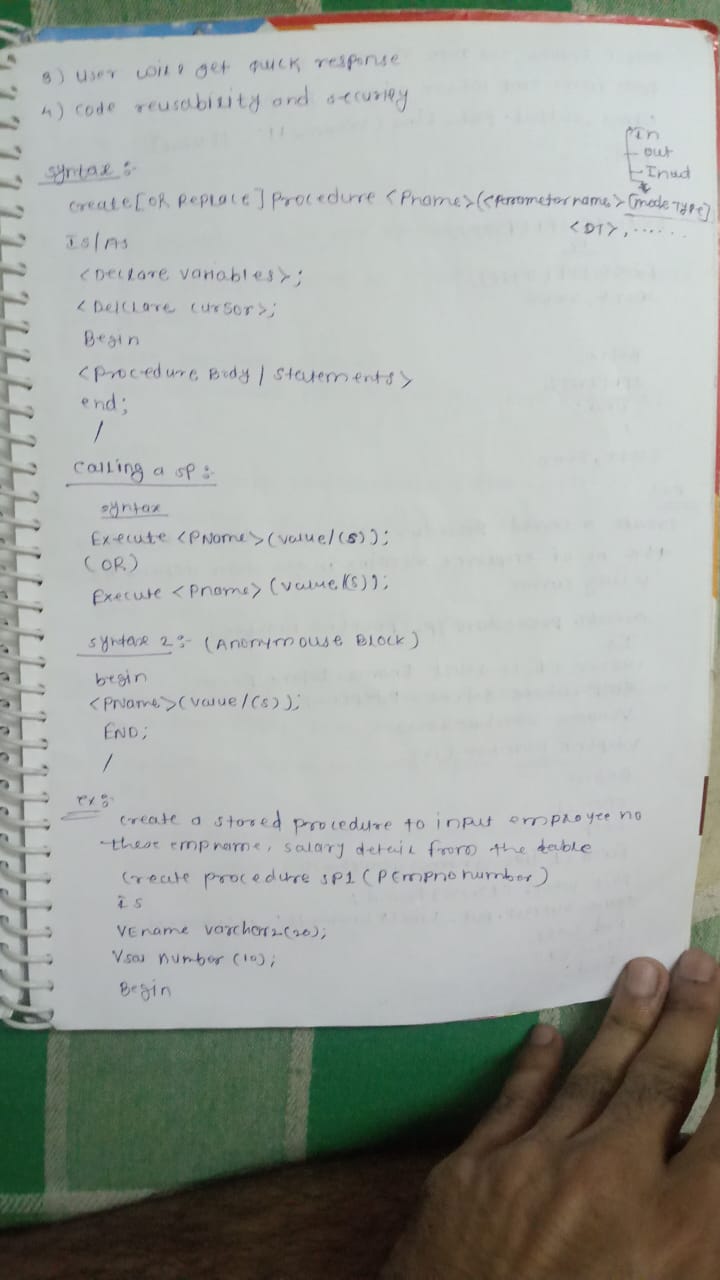 3) user will get quick response
4) code reusability and security
In
out
Inout
syntax :-
create [OR Replace] Procedure <Pname>(<Parameter name> [mode TYPE]
<DT>, ......
IS/AS
<Declare variables>;
<Declare cursor>;
Begin
<Procedure Body / Statements>
end;
/
Calling a SP :-
syntax
Execute <PName>(value/(s));
(OR)
Execute <Pname>(value/(s));
syntax 2 :- (Anonymouse Block)
begin
<PName>(value/(s));
END;
/
ex :-
create a stored procedure to input employee no
these empname, salary detail from the table
Create procedure SP1 (Pempno number)
is
VEname varchar2(20);
Vsal number (10);
Begin